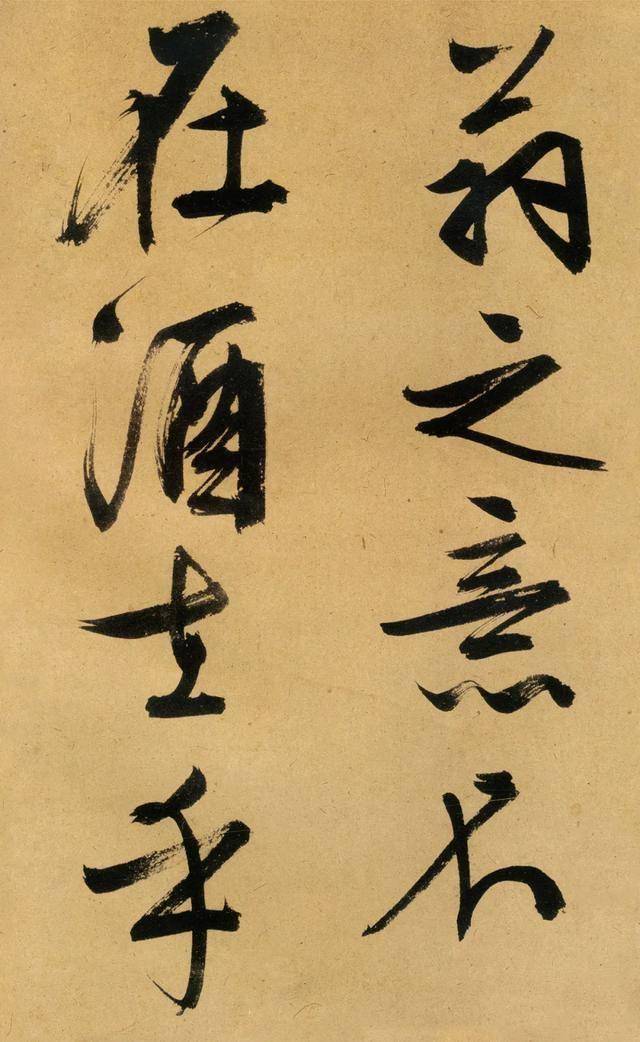 翁之意不
在酒在乎